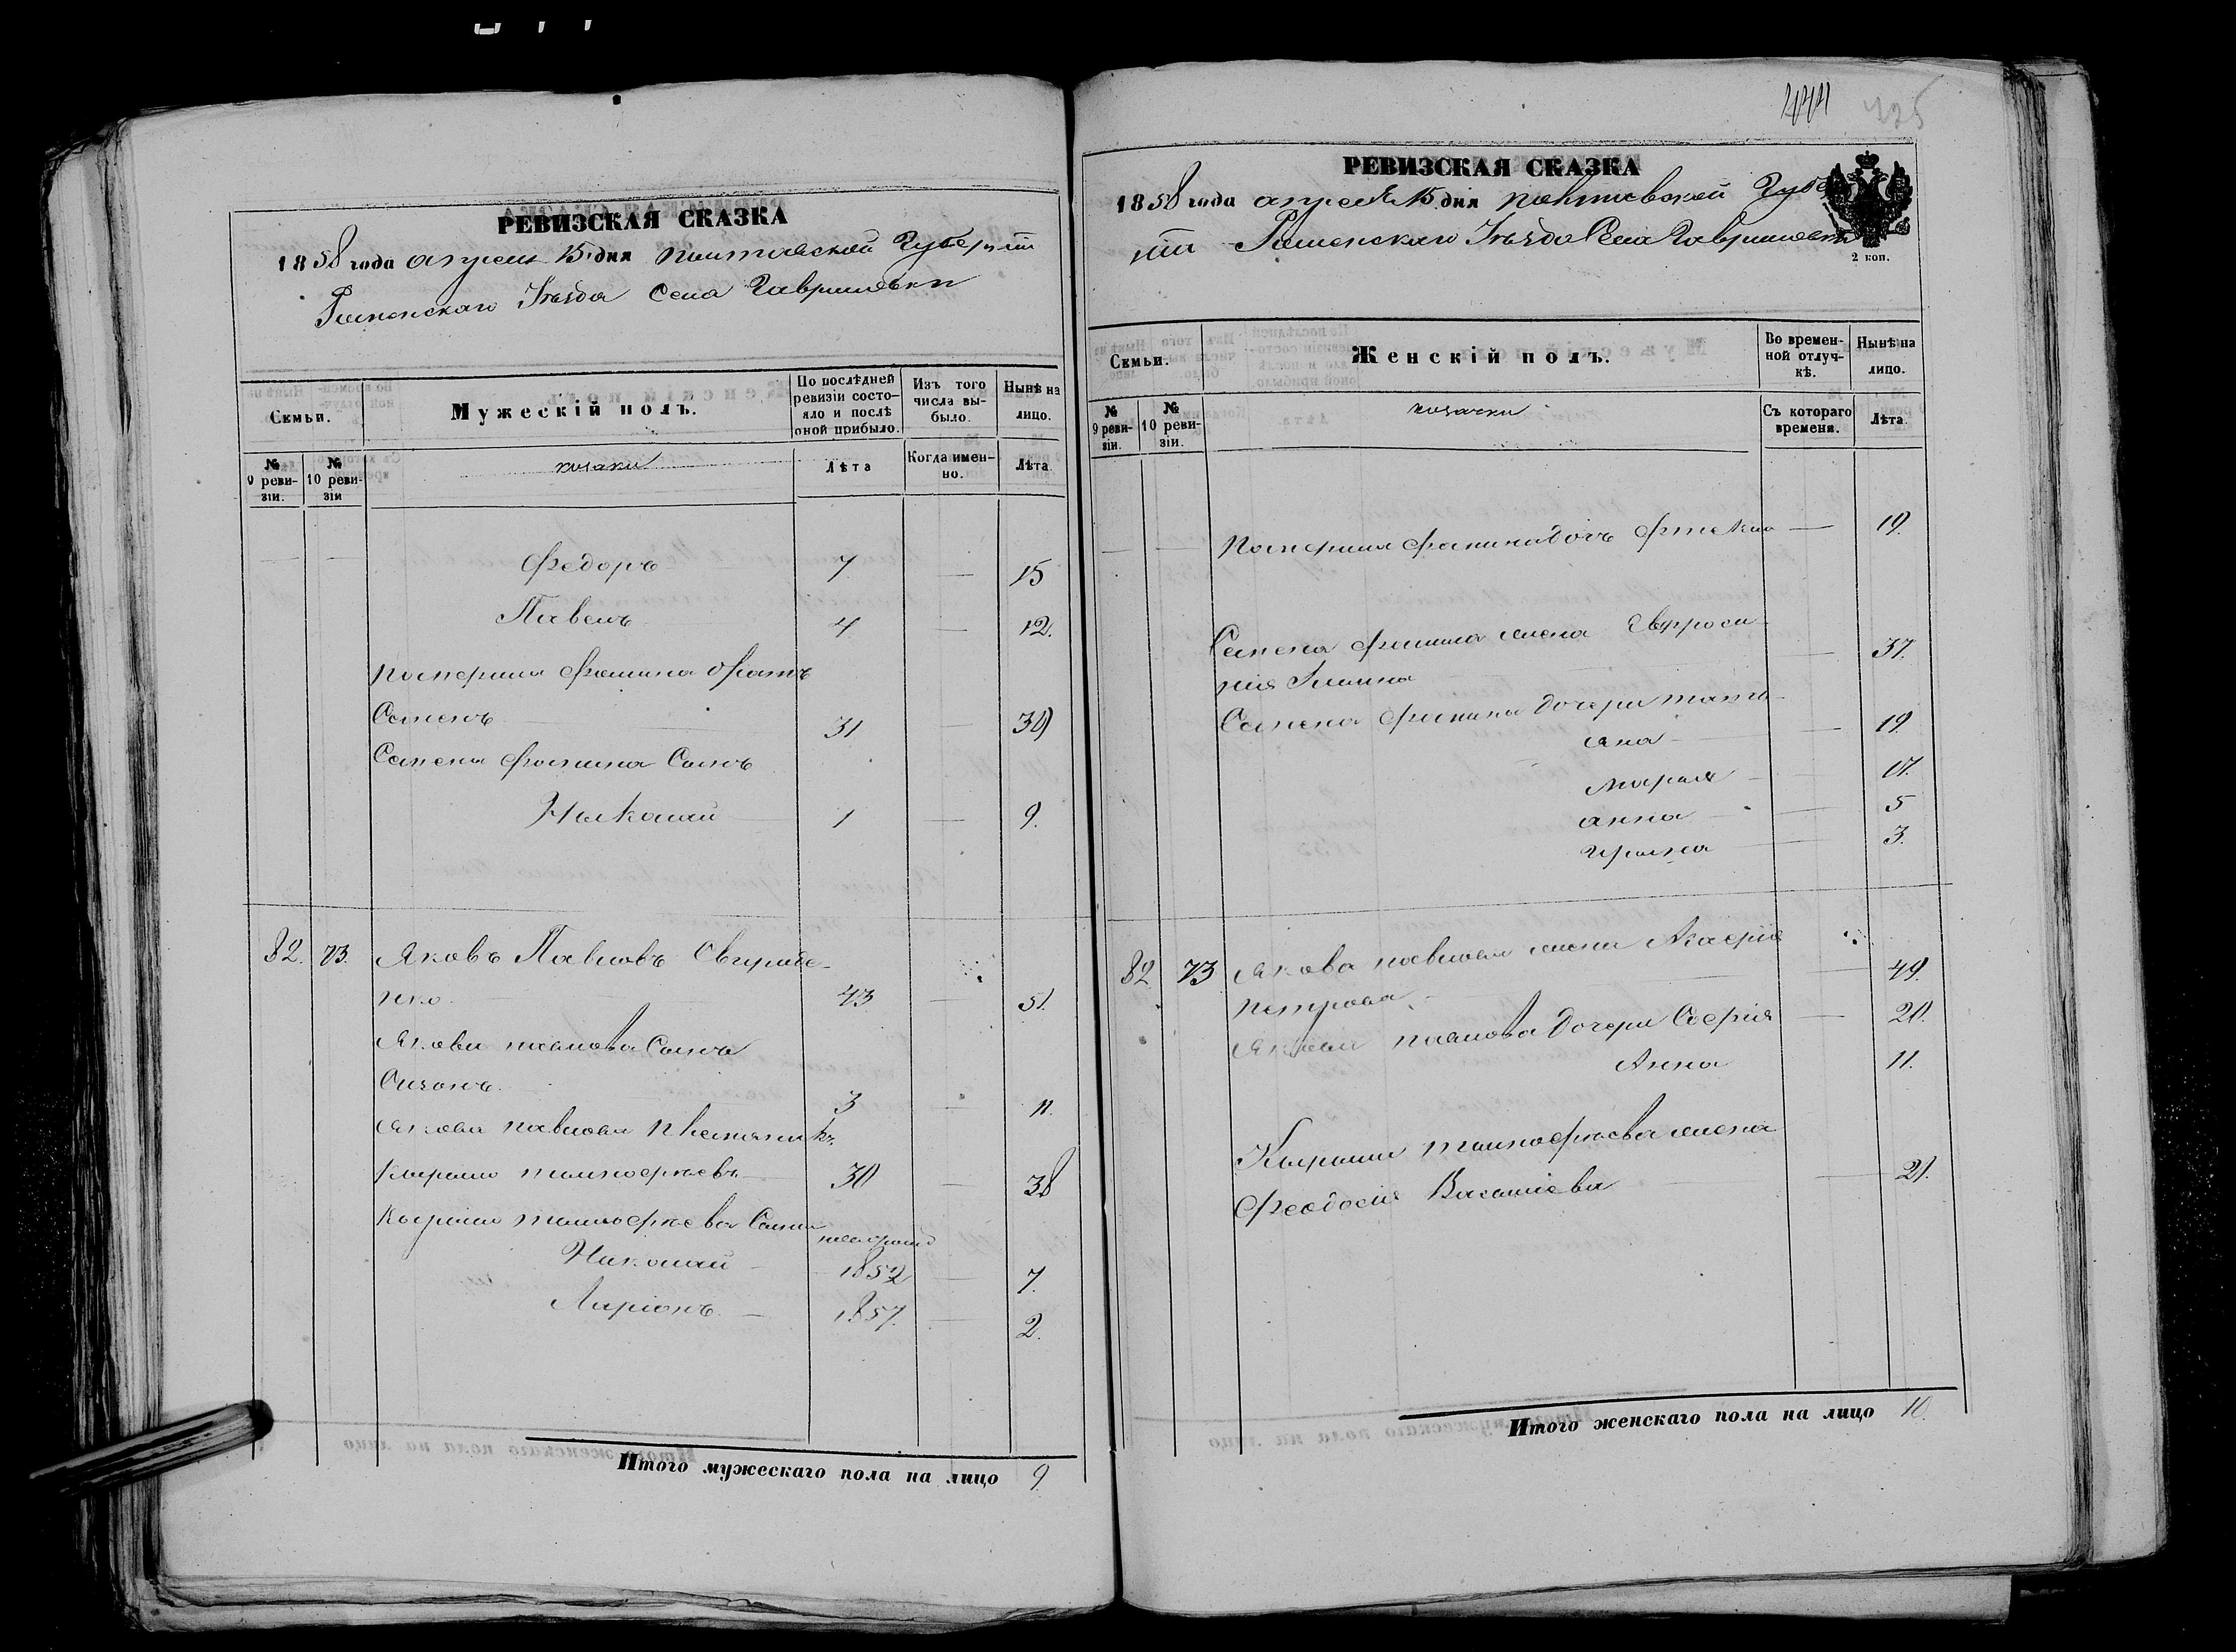 РЕВИЗСКАЯ СКАЗКА
1858 года апреля 15 дня Полтавской Губерніи
Роменскаго Уѣзда Села Гавришовки
Семьи.
Мужескій полъ.
По послѣдней ревизіи состояло и послѣ оной прибыло.
Изъ того числа выбыло.
Нынѣ на лицо.
№ 9 ревизіи.
№ 10 ревизіи
козаки
Лѣта
Когда именно.
Лѣта
Федоръ 7 — 15
Павелъ 4 — 12.
Фомина братъ
Семенъ 31 — 39
Семена Фомина Сынъ
Николай 1 — 9.
82. 73. Яковъ Павловъ Свириде-
нко. 43 — 51.
Якова Павлова Сынъ
Созонъ. 3 — 11.
Якова Павлова племяникъ
Кирило 30 — 38
Кирила Сыны
новорожд
Николай 1852 — 7.
Ларіонъ. 1857. — 2.
Итого мужескаго пола на лицо 9.
444
225
РЕВИЗСКАЯ СКАЗКА
1858 года апреля 15 дня Полтавской Губер
ніи Роменскаго Уѣзда Села Гавришовки
2 коп.
Семьи.
Женскій полъ.
Во временной отлучкѣ.
Нынѣ на лицо.
№ 9 ревизіи.
№ 10 ревизіи.
козачки
Съ котораго времени.
Лѣта.
Фомина дочь — 19.
Семена Фомина жена Евфроси-
нія — 37.
Семена Фомина дочери татъ-
яна — 19.
Марія — 17.
анна — 5
Ирина — 3.
82. 73 Якова Павлова жена
Петрова. — 49.
Якова Павлова дочери Софія — 20.
Анна 11.
Кирила жена
Феодосія Василіева — 21.
Итого женскаго пола на лицо 10.